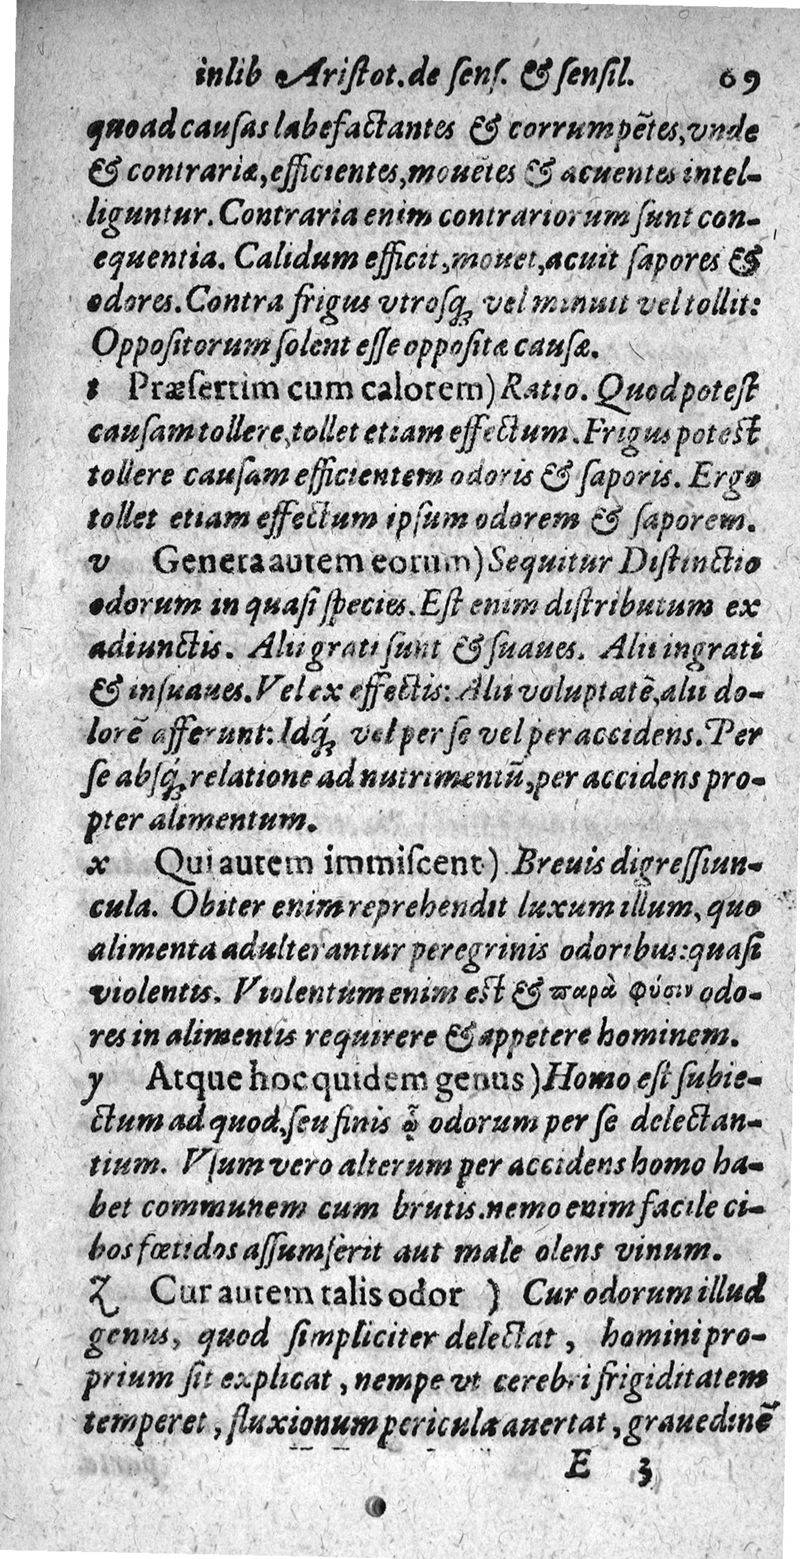 inlib Aristot. de sens. & sensil. 69
quoad causas labefactantes & corrumpẽtes, vnde
& contrariæ, efficientes, mouẽtes & acuentes intel-
liguntur. Contraria enim contrariorum sunt con-
equentia. Calidum efficit, mouet, acuit sapores &
odores. Contra frigus vtrosq́ꝫ vel minuit vel tollit:
Oppositorum solent esse oppositæ causæ.
t Præsertim cum calorem) Ratio. Quod potest
causam tollere, tollet etiam effectum. Frigus potest
tollere causam efficientem odoris & saporis. Ergo
tollet etiam effectum ipsum odorem & saporem.
v Genera autem eorum) Sequitur Distinctio
odorum in quasi species. Est enim distributum ex
adiunctis. Alii grati sunt & suaues. Alii ingrati
& insuaues. Vel ex effectis: Alii voluptatẽ, alii do-
lorẽ afferunt: Idq́ꝫ vel per se vel per accidens. Per
se absq́ꝫ relatione ad nutrimentũ, per accidens pro-
pter alimentum.
x Qui autem immiscent) Breuis digressiun-
cula. Obiter enim reprehendit luxum illum, quo
alimenta adulterantur peregrinis odoribus: quasi
violentis. Violentum enim est & παρὰ φύσιν odo-
res in alimentis requirere & appetere hominem.
y Atque hoc quidem genus) Homo est subie-
ctum ad quod, seu finis ᾧ odorum per se delectan-
tium. Vsum vero alterum per accidens homo ha-
bet communem cum brutis. nemo enim facile ci-
bos fœtidos assumserit aut male olens vinum.
z Cur autem talis odor ) Cur odorum illud
genus, quod simpliciter delectat, homini pro-
prium sit explicat, nempe vt cerebri frigiditatem
temperet, fluxionum pericula auertat, grauedinẽ
E 3